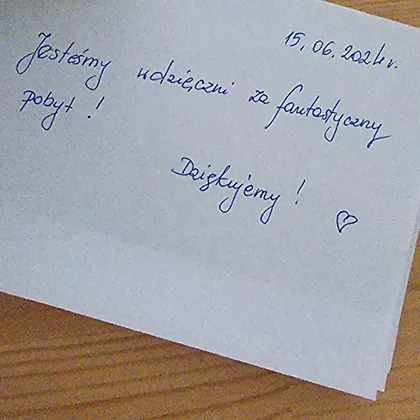 15.06.2024r.
Jesteśmy wdzięczni za fantastyczny
pobyt!
Dziękujemy!